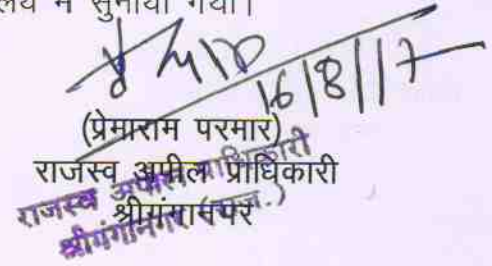 में सुनाया गया।
16/8/17
(प्रेमाराम परमार)
राजस्व अपील प्राधिकारी
श्रीगंगानगर
राजस्व अपील प्राधिकारी
श्रीगंगानगर (राज.)